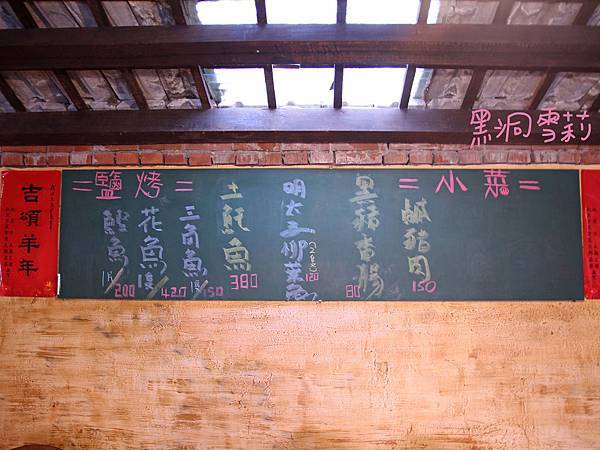 黑洞雪莉
吉頌羊年
=鹽烤=
魚 1片/200
花魚 1尾/420
三角魚 1尾/150
土魠魚 380
明太子柳葉魚(2尾) 120
=小菜=
黑豬香腸 80
鹹豬肉 150